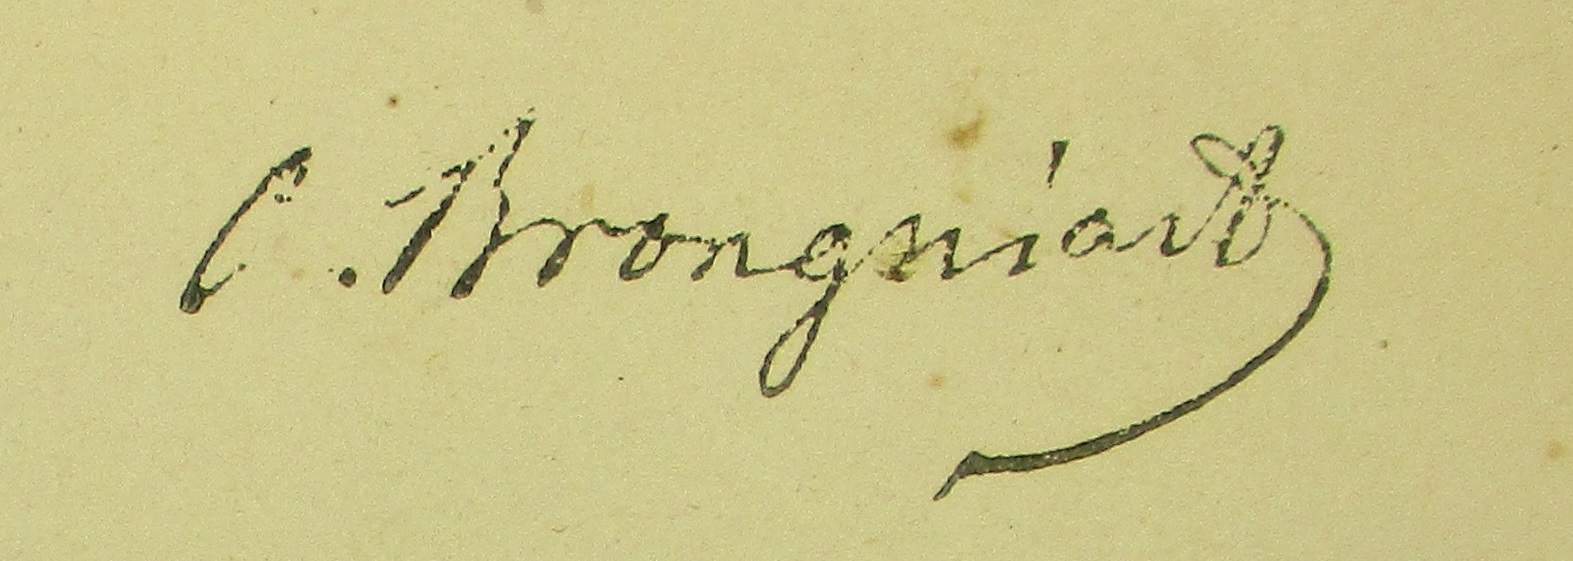 C. Brongniart